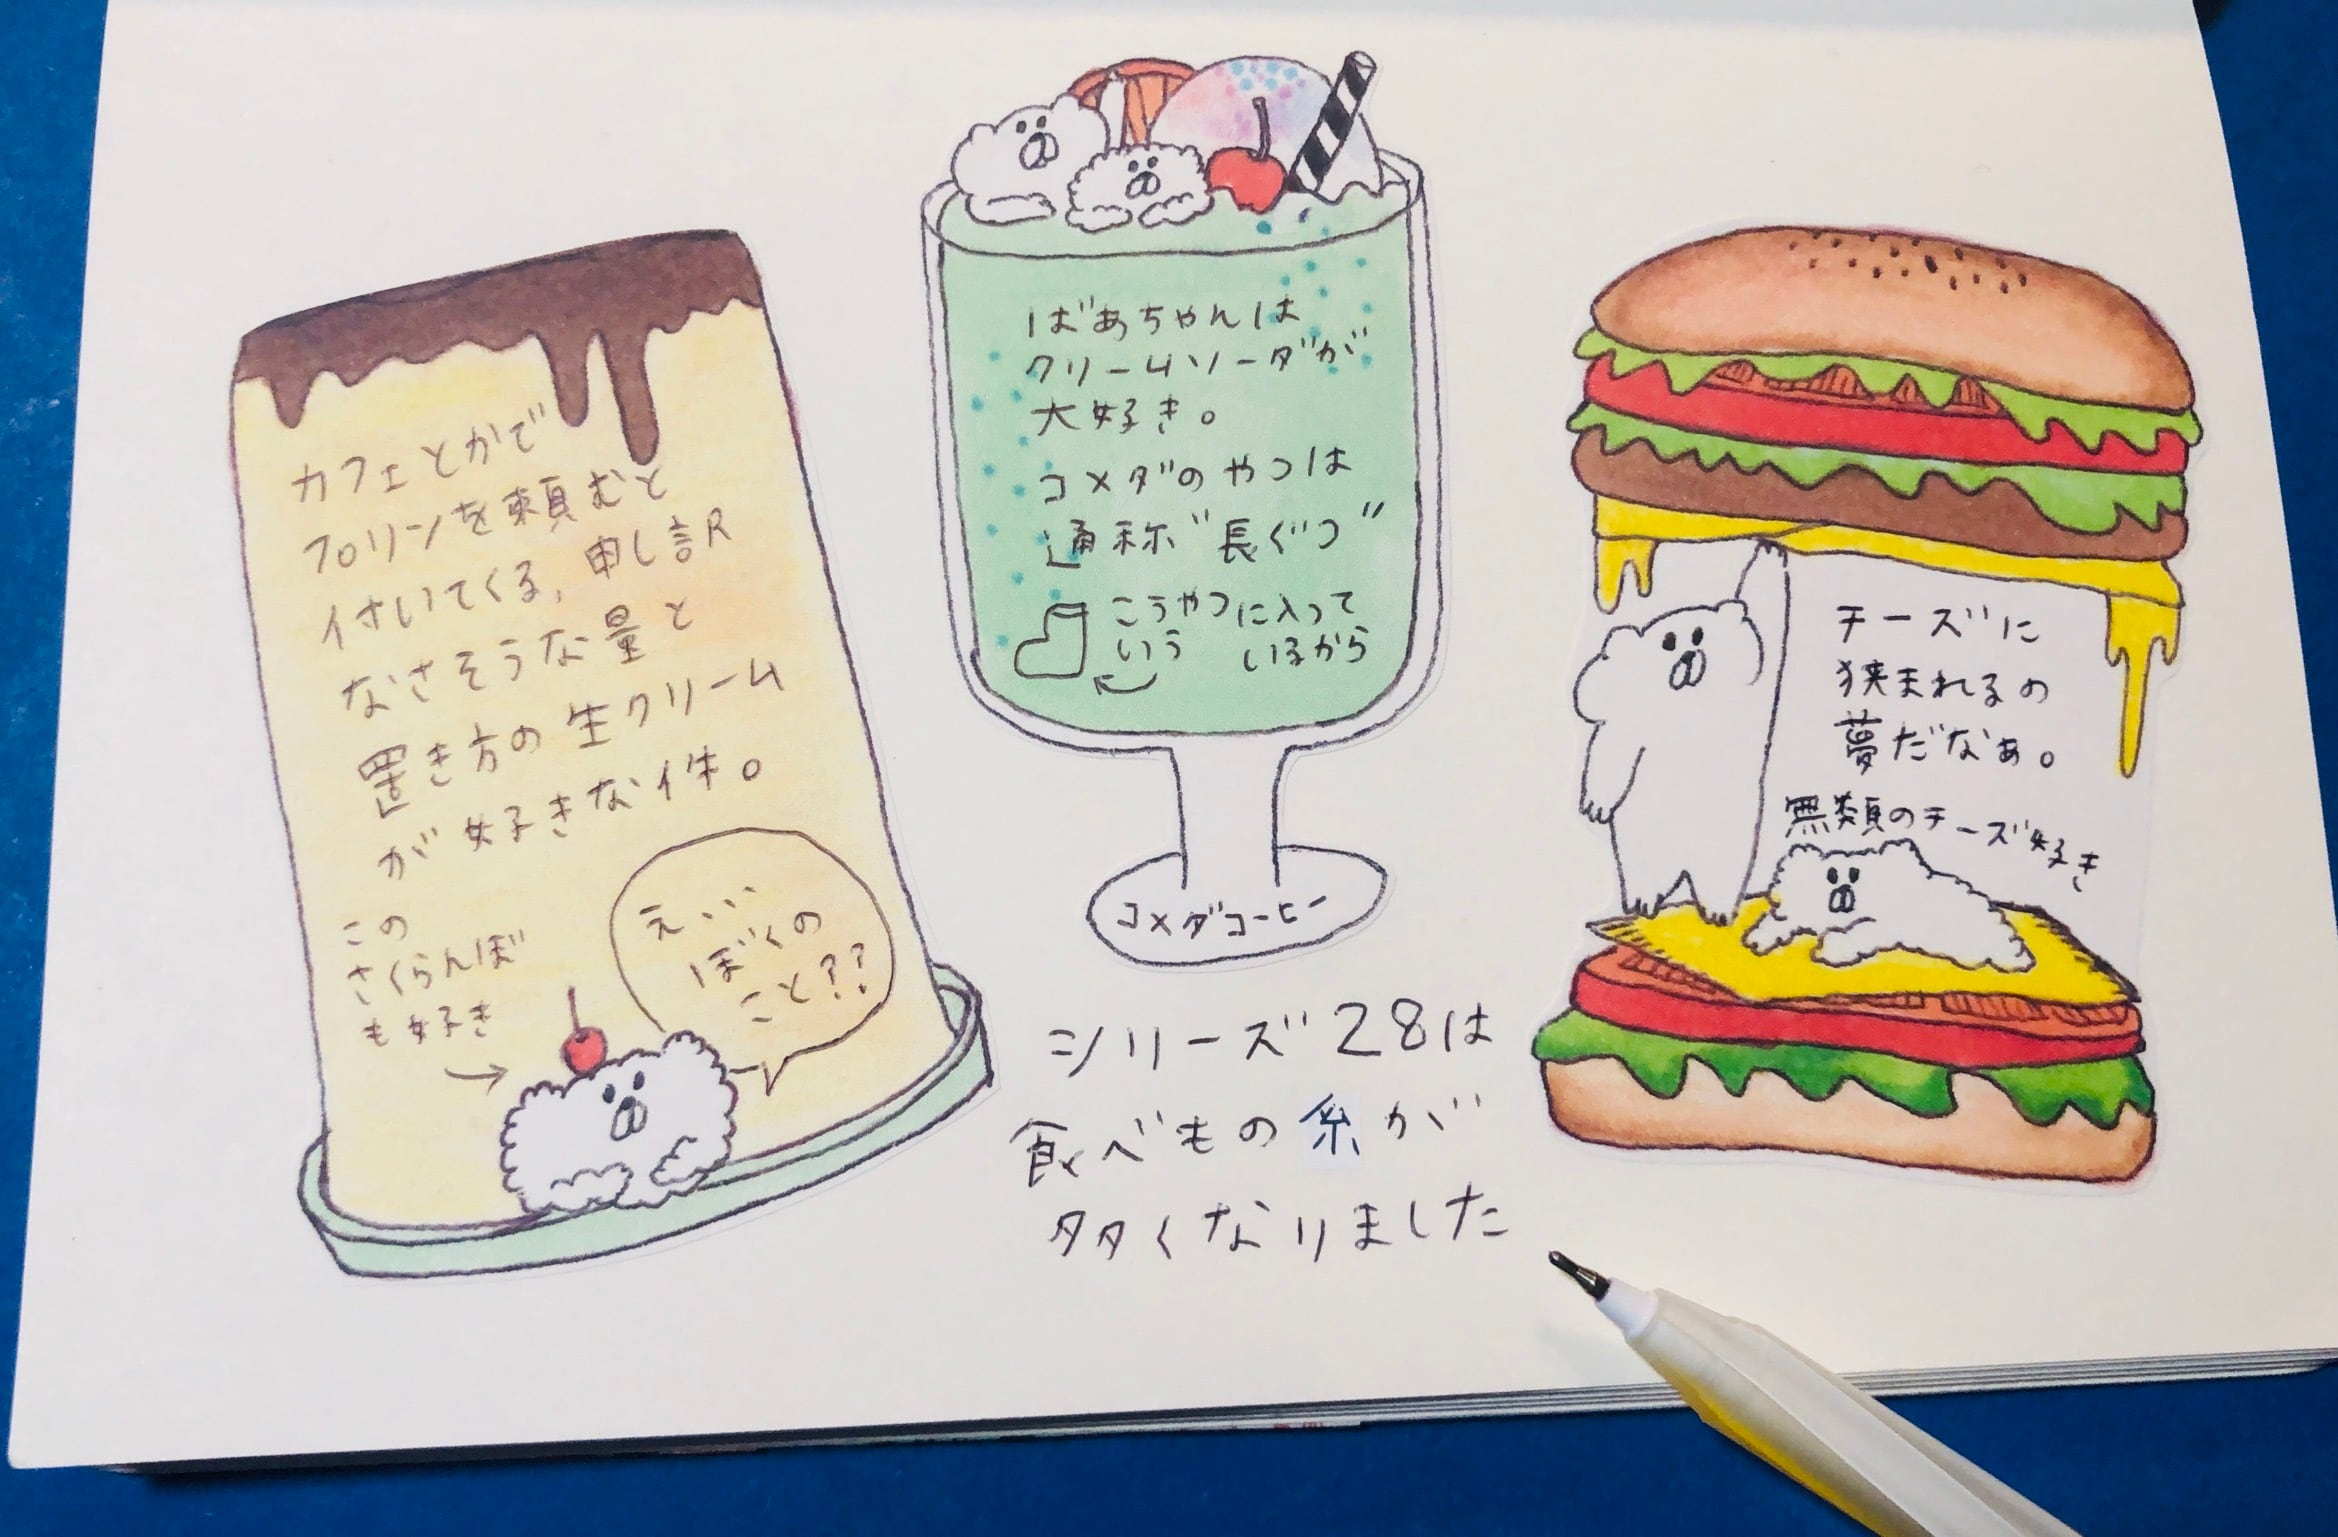 カフェとかで
プリンを頼むと
付いてくる、申し訳
なさそうな量と
置き方の生クリーム
が好きな件。
この
さくらんぼ
も好き
えぃぃ
ぼくの
こと??
ばあちゃんは
クリームソーダが
大好き。
コメダのやつは
通称"長ぐつ"
こうやつに入って
いう いるから
コメダコーヒー
シリーズ28は
食べもの糸が
多くなりました
チーズに
狭まれるの
夢だなぁ。
無類のチーズ好き